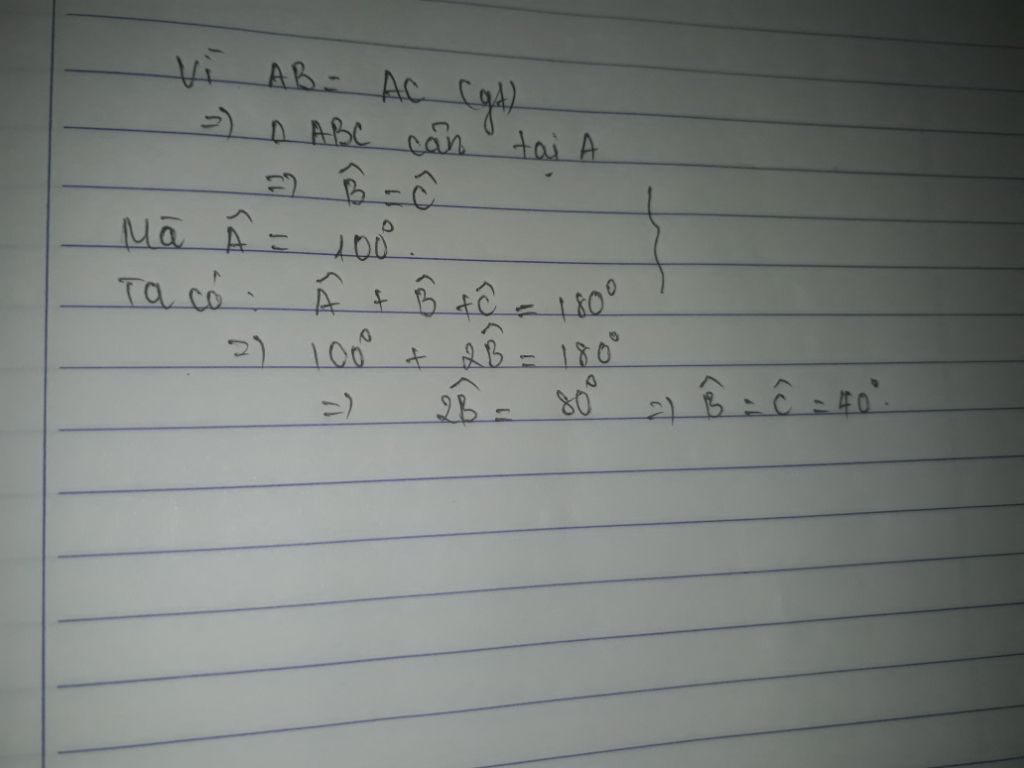 Vì AB = AC (gt)
=> Δ ABC cân tại A
=> B̂ = Ĉ
Mà Â = 100°.
Ta có: Â + B̂ + Ĉ = 180°
=> 100° + 2B̂ = 180°
=> 2B̂ = 80° => B̂ = Ĉ = 40°.